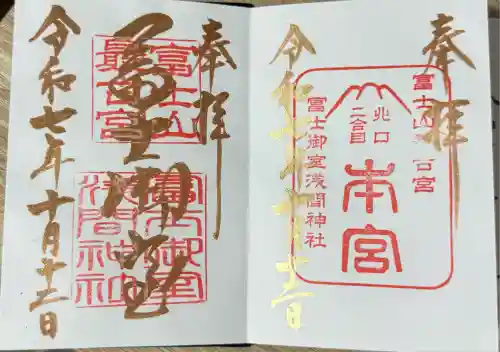 奉拝
富士山
最古宮
冨士御室
冨士御室
浅間神社
令和七年十月十二日
奉拝
富士山最古宮
北口
二合目
本宮
冨士御室浅間神社
令和七年十月十二日